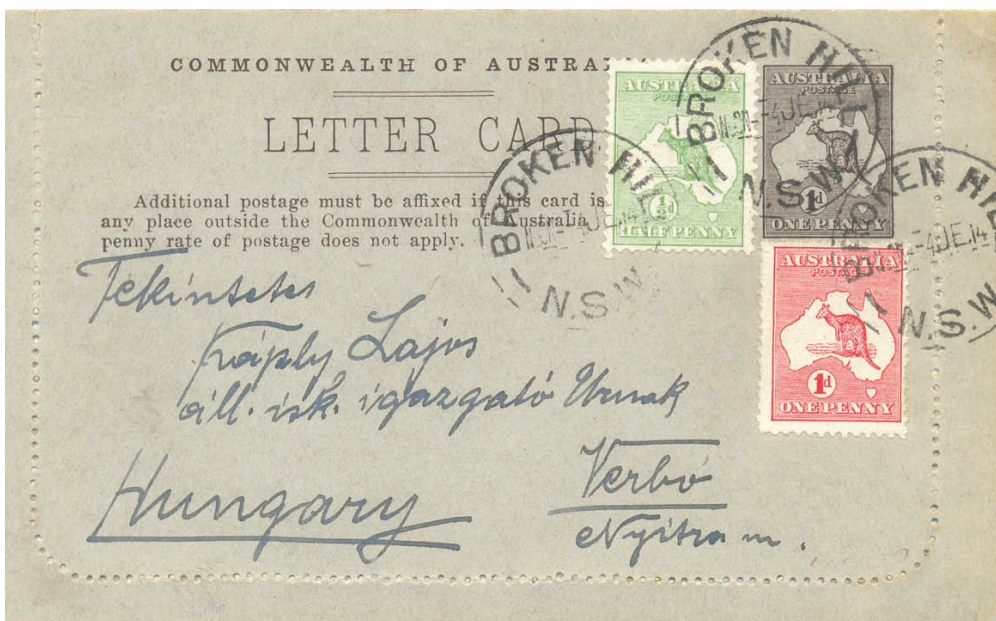 COMMONWEALTH OF AUSTRA
LETTER CARD
Additional postage must be affixed if this card is
any place outside the Commonwealth of Australia,
penny rate of postage does not apply.
AUSTRALIA
POSTAGE
½d
HALFPENNY
AUSTRALIA
POSTAGE
1d
ONE PENNY
AUSTRALIA
POSTAGE
1d
ONE PENNY
BROKEN HILL
4 JE.14
N.S.W.
BROKEN HILL
JE.14
N.S.W.
BROKEN HILL
4 JE.14
N.S.W.
Tekintetes
Lajos
áll. isk. igazgató Urnak
Verbó
Hungary
Nyitra m.